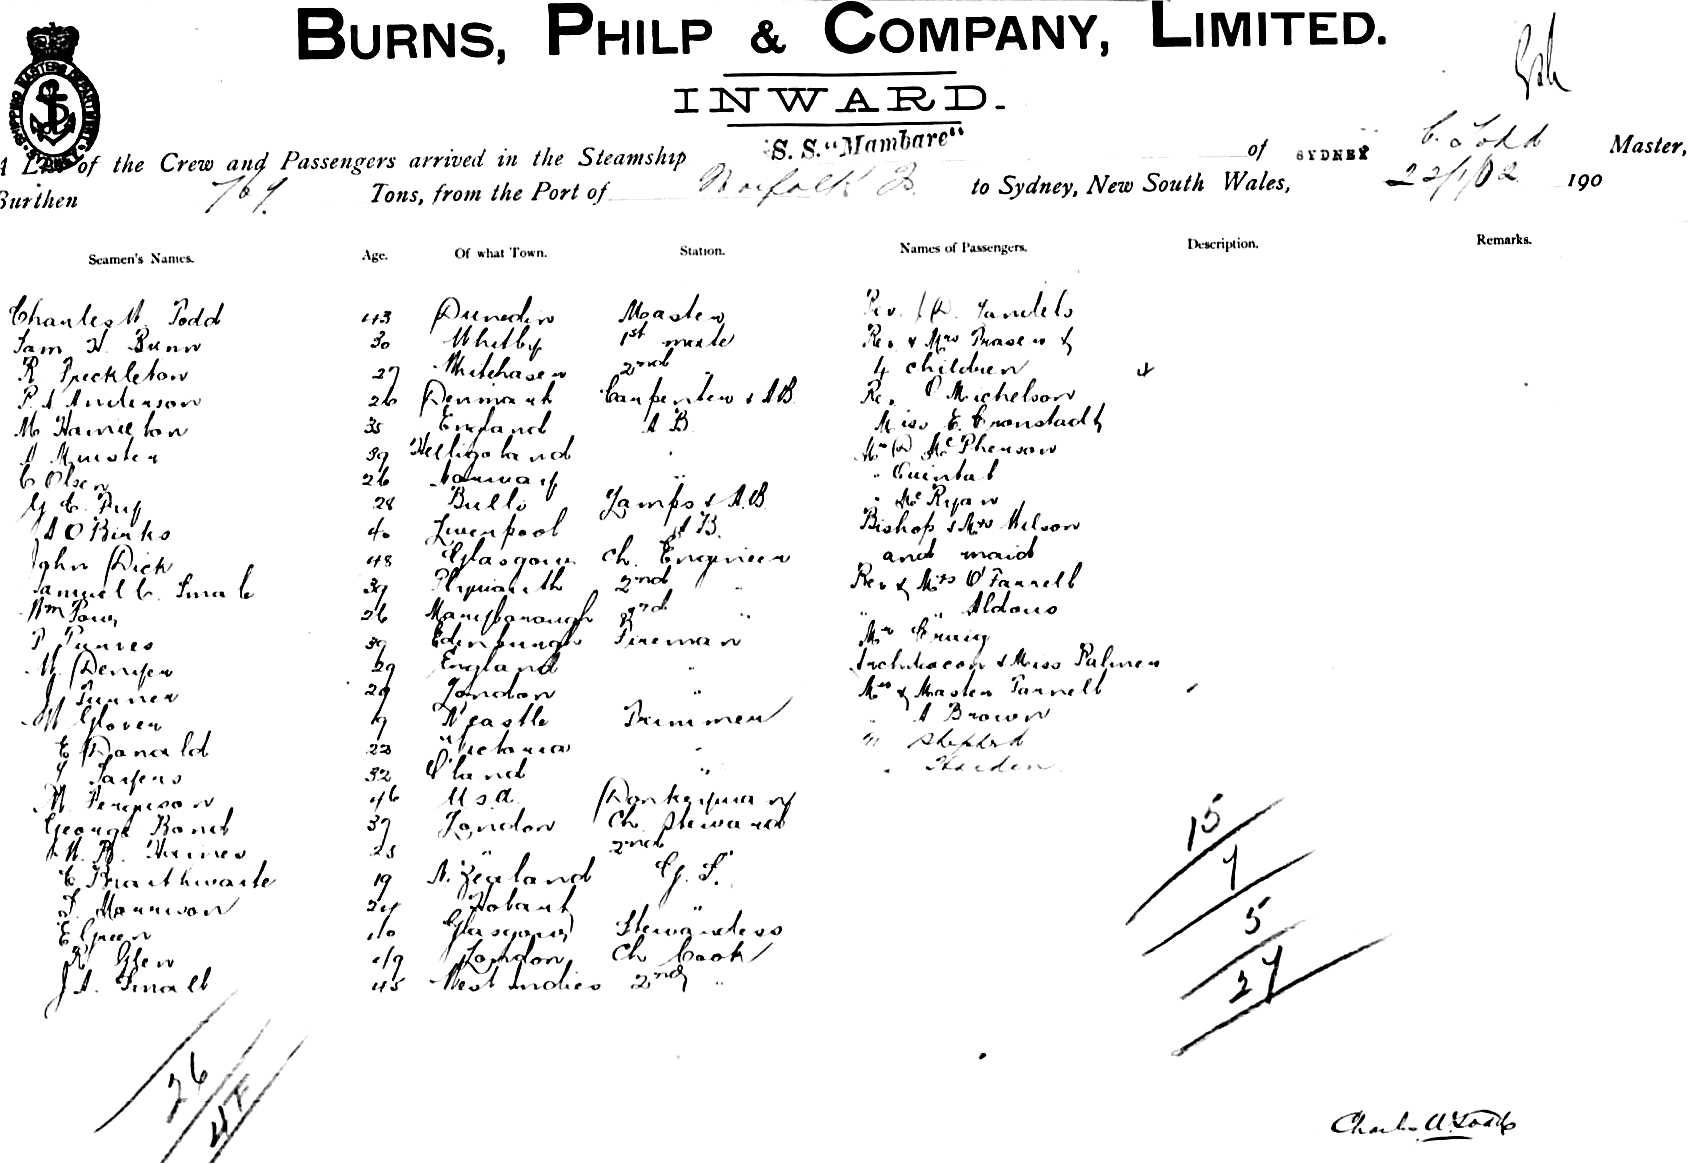 BURNS, PHILP & COMPANY, LIMITED.
INWARD.
A List of the Crew and Passengers arrived in the Steamship "S. S. "Mambare" of SYDNEY C. Todd Master,
Burthen 767 Tons, from the Port of Norfolk Is. to Sydney, New South Wales, 22/1/02 190
Seamen's Names. Age. Of what Town. Station. Names of Passengers. Description. Remarks.
Charles W. Todd 43 Dunedin Master Rev.
Sam H. Bunn 30 Whitby 1st mate Rev & Mrs Fraser &
R Freckleton 27 Whitehaven 2nd " 4 children 4
P. A Anderson 26 Denmark Carpenter & AB Rev. P Michelson
M Hamilton 35 England A B. Miss E. Cronstadt
A 39 Helligoland Mr D McPherson
C Olsen 26 Norway " " Quintal
G. C. 28 Lamps & A.B. " McRyan
A O Binks 40 Liverpool A B. Bishop & Mrs Wilson
John Dick 48 Glasgow Ch. Engineer and maid
Samuel C. Smale 39 Plymouth 2nd " Rev & Mrs O'Farrell
Wm 26 Maryborough 3rd " " " Aldous
P Purves 39 Edinburgh Fireman Mr Craig
W. 29 England " Archdeacon & Miss Palmer
J Turner 29 London " Mrs & Master Farrell
W Glover N'castle Trimmer " A Brown
E Donald 23 Victoria " " Shepherd
32 " "
M Ferguson 46 U.S.A. Donkeyman
George Bond 39 London Ch. Steward
W. B. Haines 25 " 2nd "
C Braithwaite 19 N. Zealand G. S.
Morrison 24 Hobart "
E Green 40 Glasgow Stewardess
R Glen 49 London Ch Cook
J A. Small 45 West Indies 2nd "
15
7
5
27
26
47
Charles W. Todd